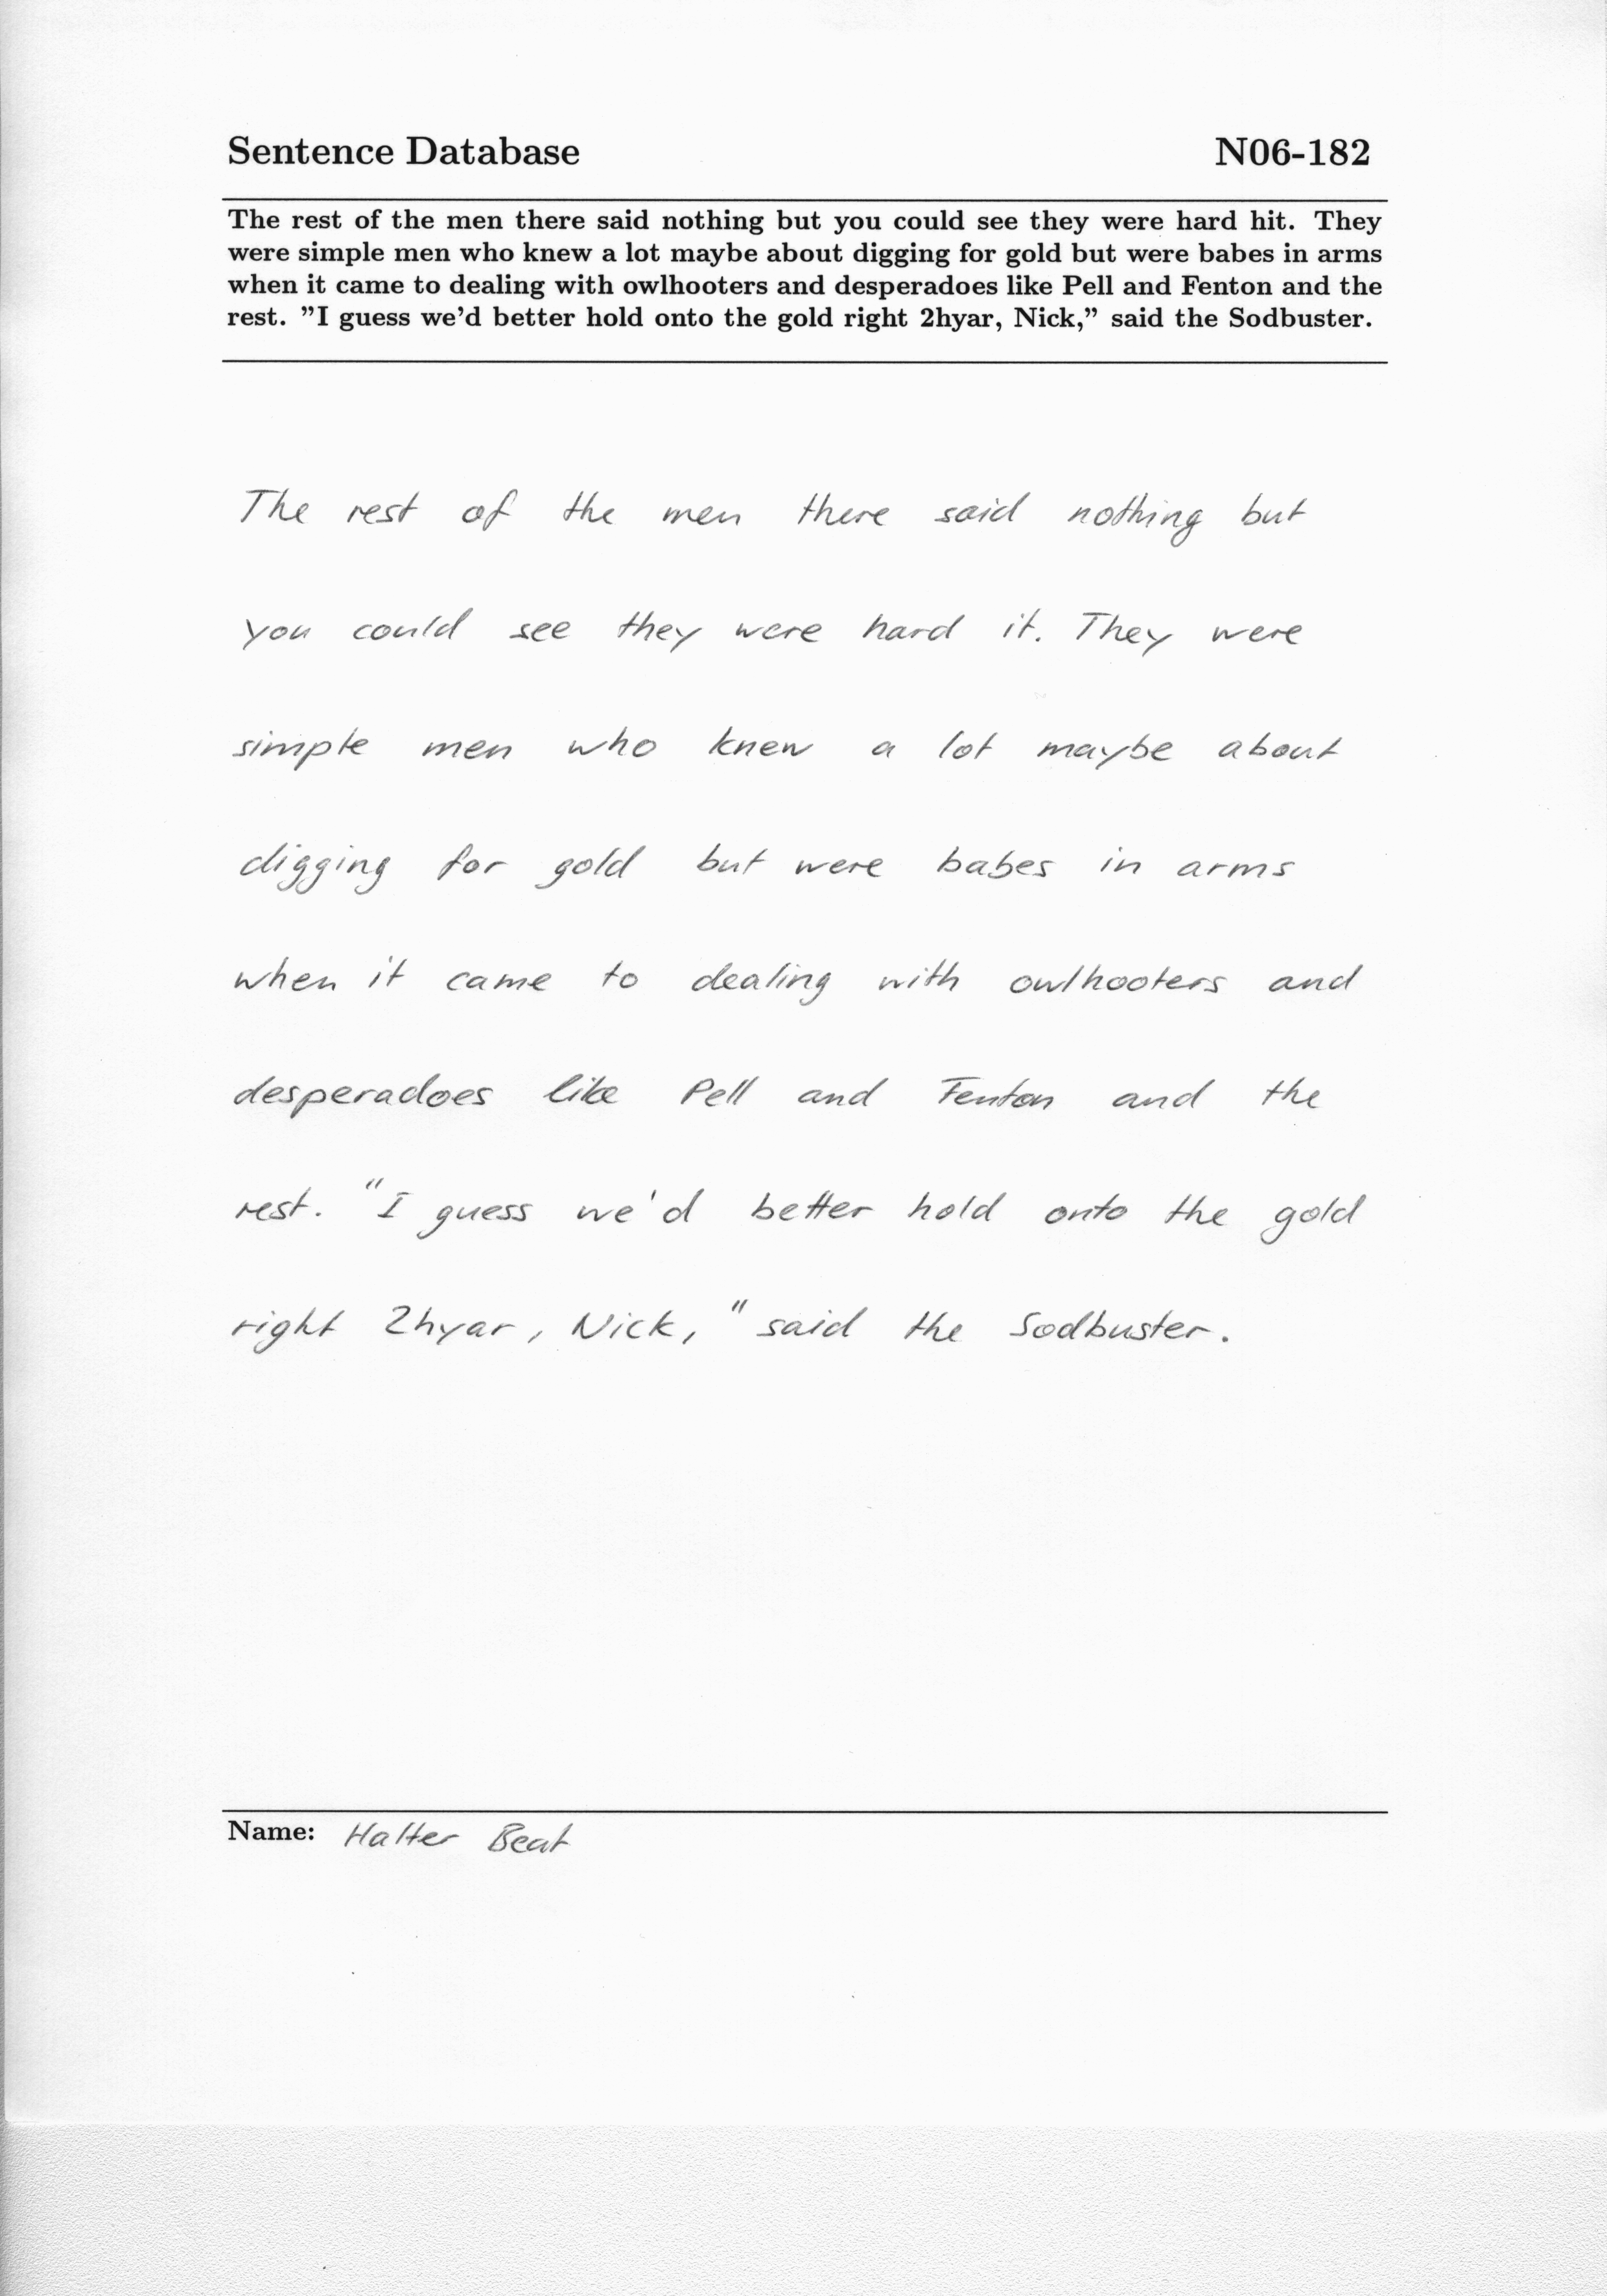 Sentence Database N06-182
The rest of the men there said nothing but you could see they were hard hit. They
were simple men who knew a lot maybe about digging for gold but were babes in arms
when it came to dealing with owlhooters and desperadoes like Pell and Fenton and the
rest. ”I guess we’d better hold onto the gold right 2hyar, Nick,” said the Sodbuster.
The rest of the men there said nothing but
you could see they were hard it. They were
simple men who knew a lot maybe about
digging for gold but were babes in arms
when it came to dealing with owlhooters and
desperadoes like Pell and Fenton and the
rest. "I guess we'd better hold onto the gold
right 2hyar, Nick," said the Sodbuster.
Name: Halter Beat